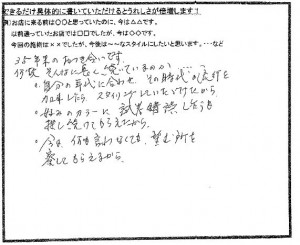 できるだけ具体的に書いていただけるとうれしさが倍増します！
例)お店に来る前は〇〇と思っていたのに、今は△△です。
以前通っていたお店では□□でしたが、今は◇◇です。
今回の施術は××でしたが、今後は～～なスタイルにしたいと思います。…など
35年来のお付き合いです。
何故そんなに長く続いているのか
・自分の年代に合わせ、その時代の流行を
加味したら、スタイリングしていただけたから
・好みのカラーに試行錯誤しながら
探し続けてもらえたから。
・今は、何も言わなくても、望む所を
察してもらえるから。